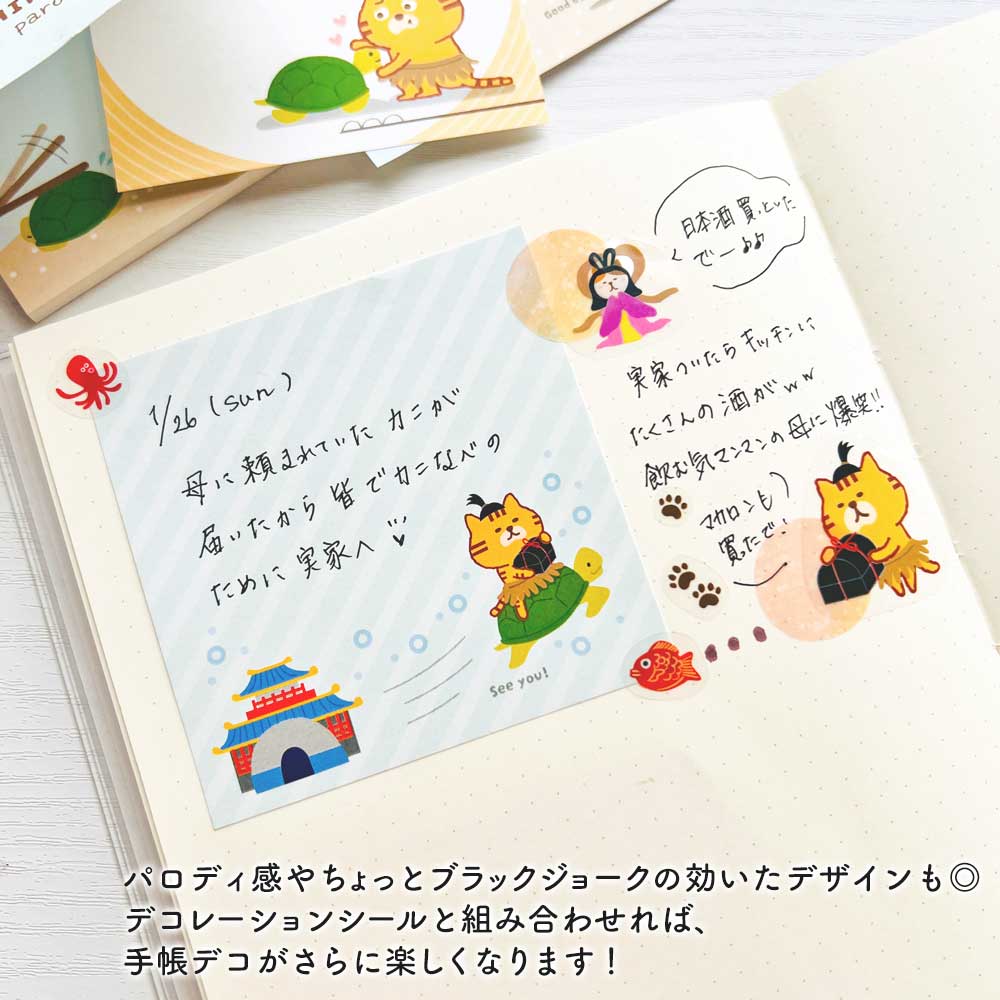 paro
Good
日本酒買いといた
でー♪♪
1/26 (sun)
母に頼まれていたカニが
届いたから皆でカニなべの
ために実家へ♡
See you!
実家ついたらキッチンに
たくさんの酒がww
飲む気マンマンの母に爆笑!!
マカロンも
買ったで!
パロディ感やちょっとブラックジョークの効いたデザインも◎
デコレーションシールと組み合わせれば、
手帳デコがさらに楽しくなります！